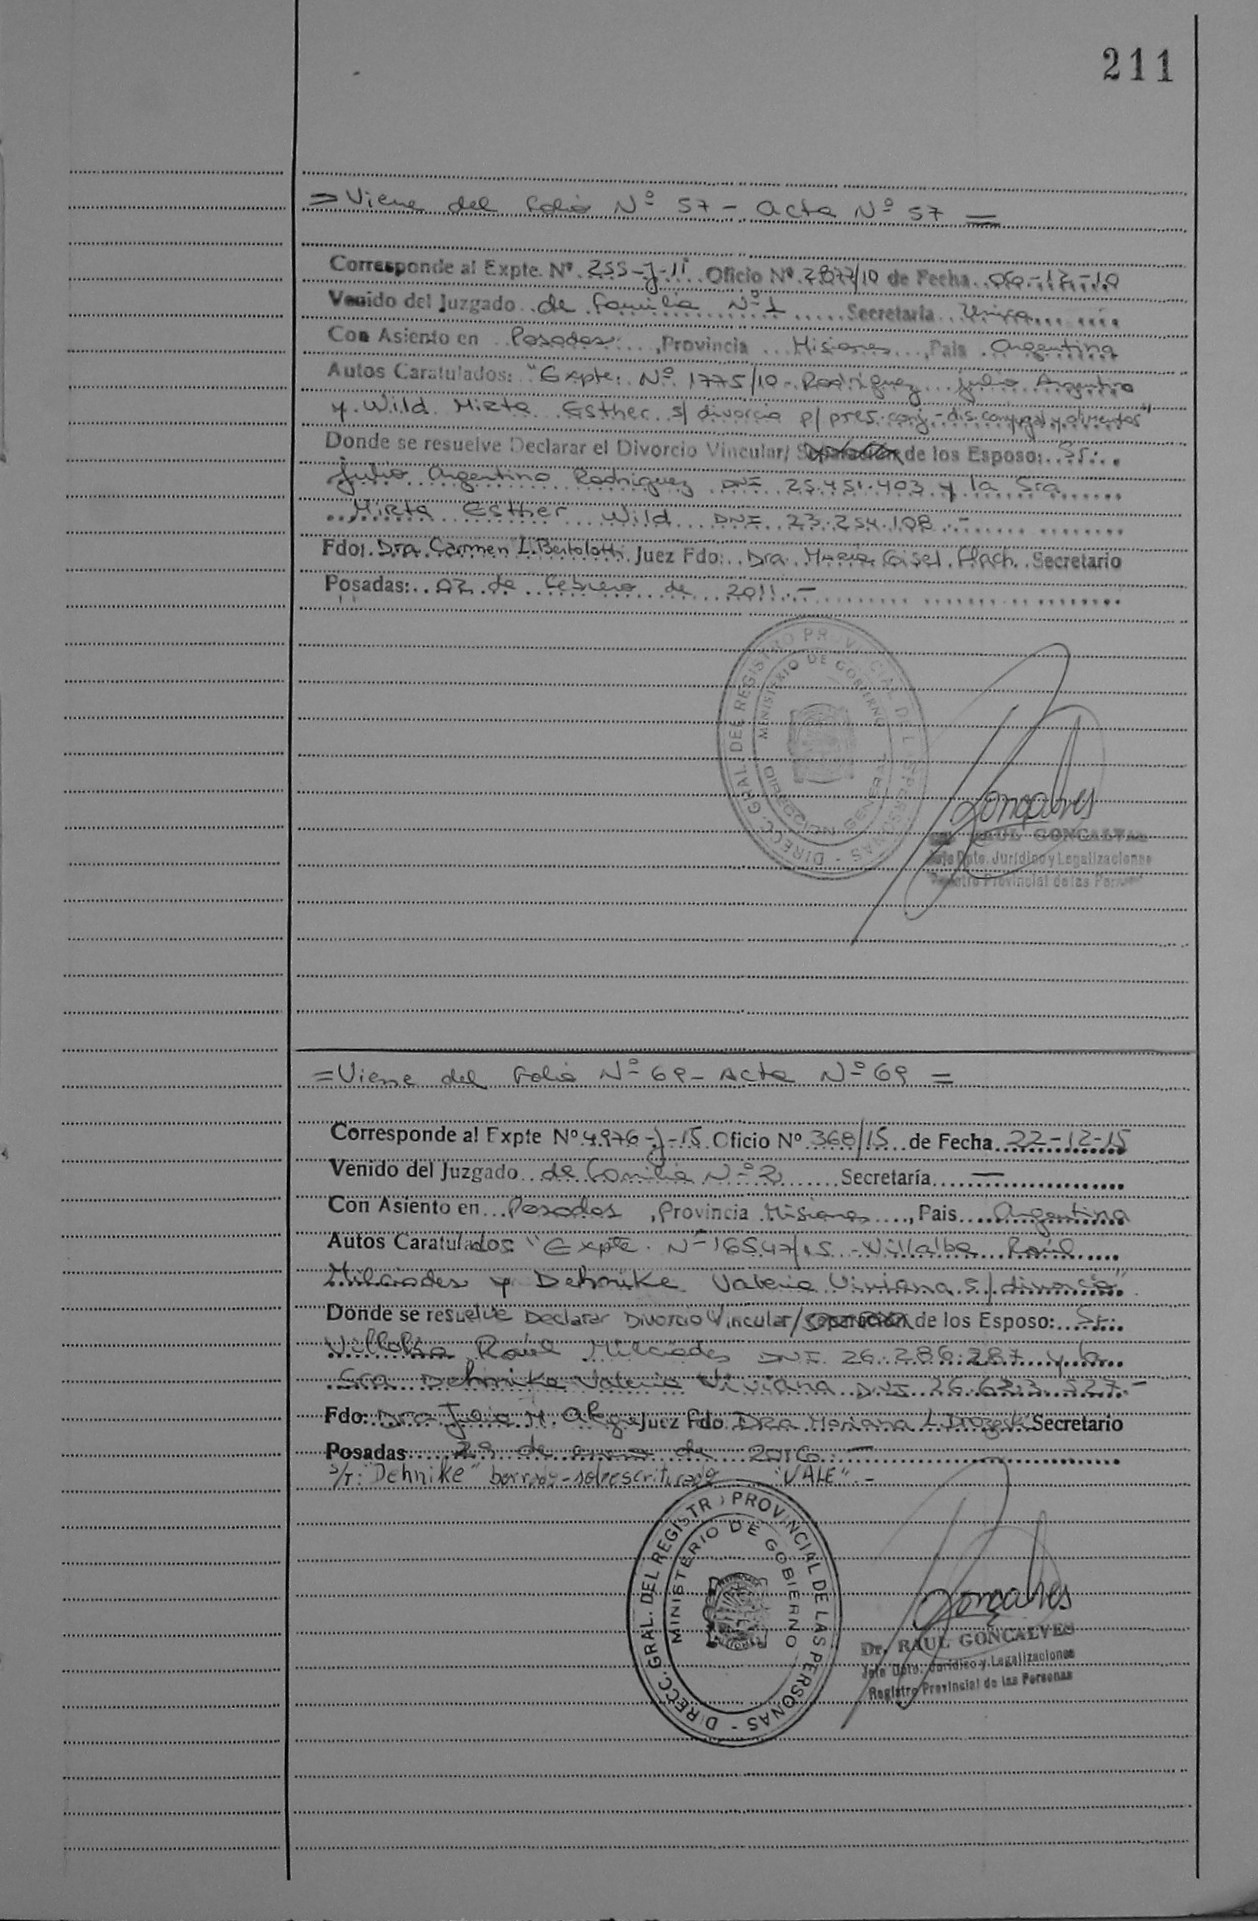 211
= Viene del Folio Nº 57 - Acta Nº 57 =
Corresponde al Expte. Nº. 255-J-11 Oficio Nº. 2877/10 de Fecha 06-12-10
Venido del Juzgado de Familia Nº 1 Secretaría Unica
Con Asiento en Posadas, Provincia Misiones, País Argentina
Autos Caratulados: "Expte. Nº 1775/10 - Rodriguez Julio Argentino
y Wild Mirta Esther s/ divorcio p/ pres. conj. - dis. conyugal y alimentos"
Donde se resuelve Declarar el Divorcio Vincular/ Separación de los Esposo: Sr.
Julio Argentino Rodriguez DNI 25.451.403 y la Sra
Mirta Esther Wild DNI 23.254.108.-
Fdo: Dra. Carmen L. Bertolotti Juez Fdo: Dra. María Gisel Secretario
Posadas: 02 de Febrero de 2011.-
DIRECC. GRAL. DEL REGISTRO PROVINCIAL DE LAS PERSONAS -
MINISTERIO DE GOBIERNO
Goncalves
RAUL GONCALVES
Jefe Dpto. Jurídico y Legalizaciones
Registro Provincial de las Personas
= Viene del Folio Nº 69 - Acta Nº 69 =
Corresponde al Expte Nº 4976-J-15 Oficio Nº 368/15 de Fecha 22-12-15
Venido del Juzgado de Familia Nº 2 Secretaría —
Con Asiento en Posadas, Provincia Misiones, País Argentina
Autos Caratulados "Expte. Nº 16547/15 - Villalba Raúl
Milciades y Dehnike Valeria Viviana s/ divorcio"
Donde se resuelve Declarar Divorcio Vincular/ Separación de los Esposo: Sr.
Villalba Raúl Milciades DNI. 26.286.287 y la
Sra Dehnike Valeria Viviana DNI 26.623.527.-
Fdo: Dra Julia M. Juez Fdo Dra Mariana L. Secretario
Posadas 29 de enero de 2016.-
s/r: "Dehnike" borroso-sobrescriturado "VALE".-
DIRECC. GRAL. DEL REGISTRO PROVINCIAL DE LAS PERSONAS -
MINISTERIO DE GOBIERNO
Goncalves
Dr. RAUL GONCALVES
Jefe Dpto. Jurídico y Legalizaciones
Registro Provincial de las Personas